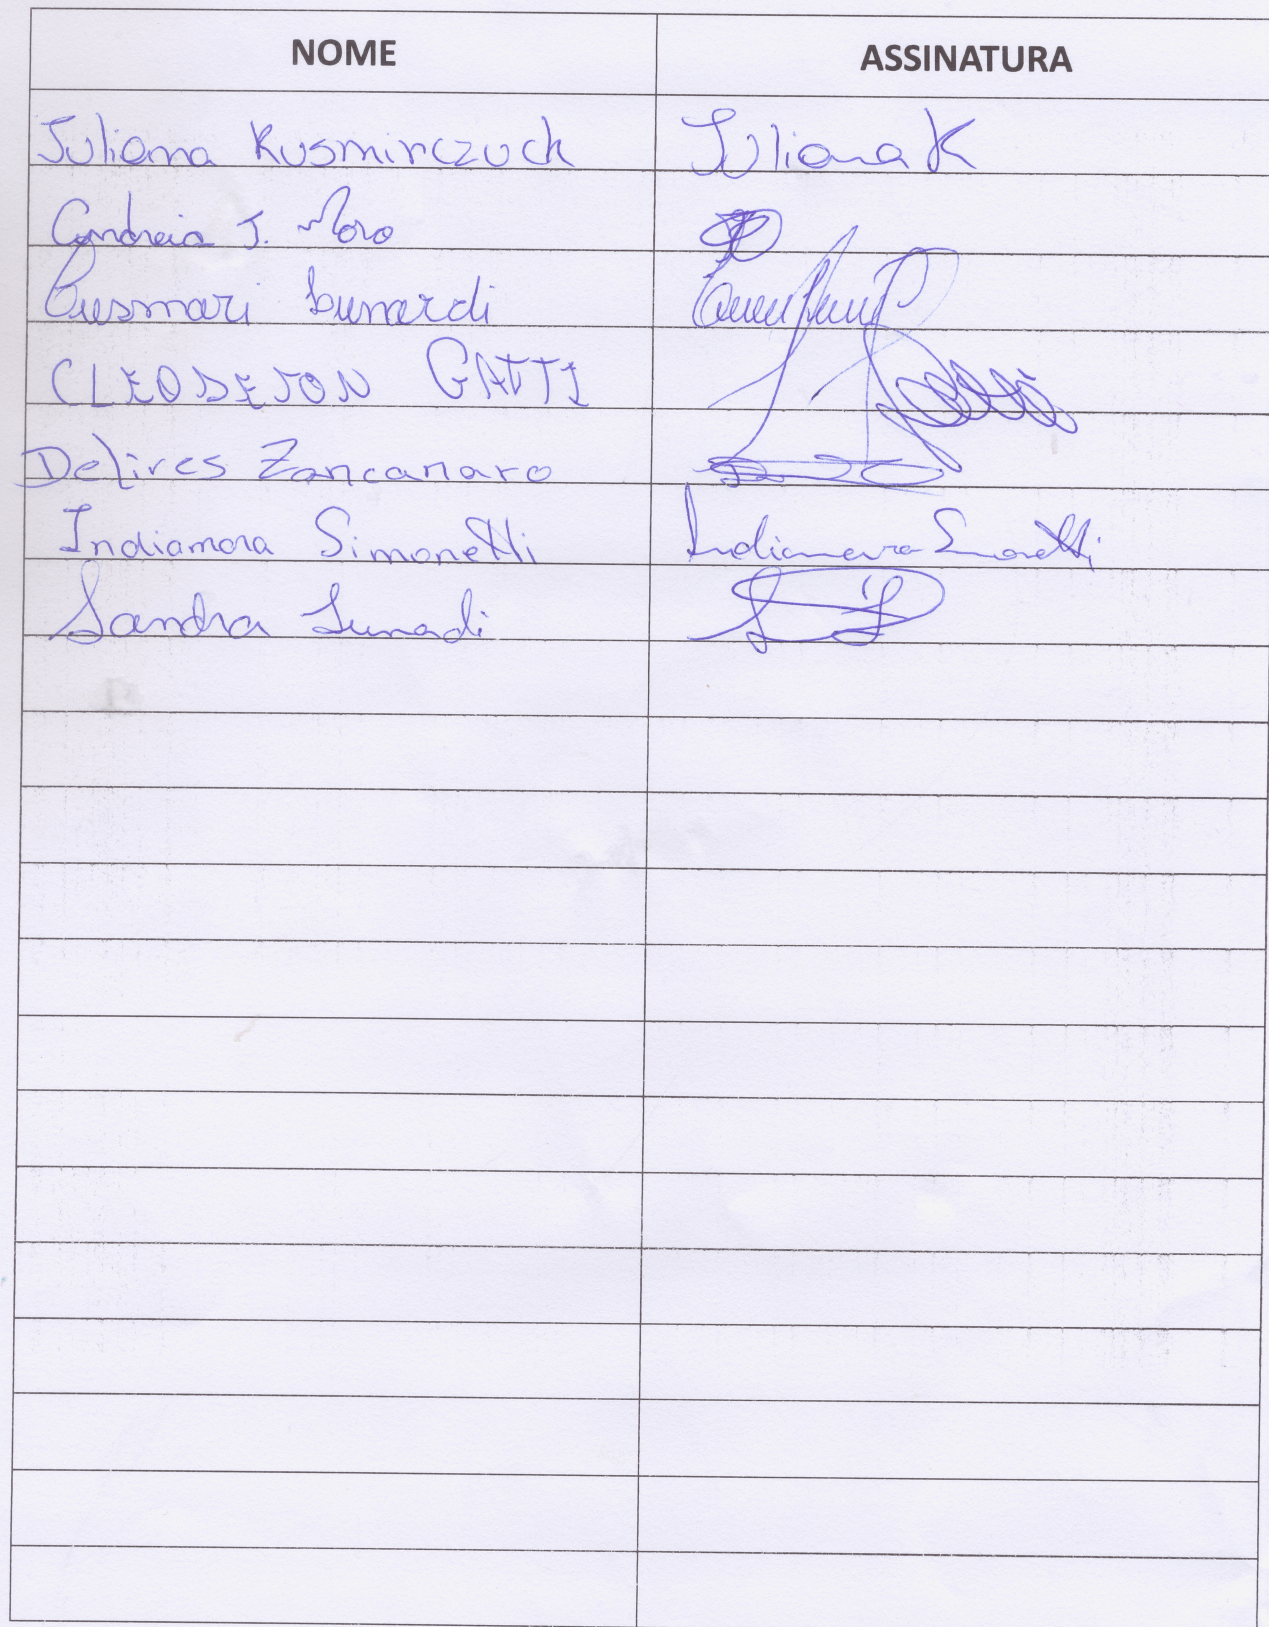 NOME ASSINATURA
Juliana Kusmirczuck Juliana K
Andreia J. Moro
Lunardi
CLEODEJON GATTI
Delires Zancanaro
Indiamara Simonetti Indiamara Simonetti
Sandra Lunardi